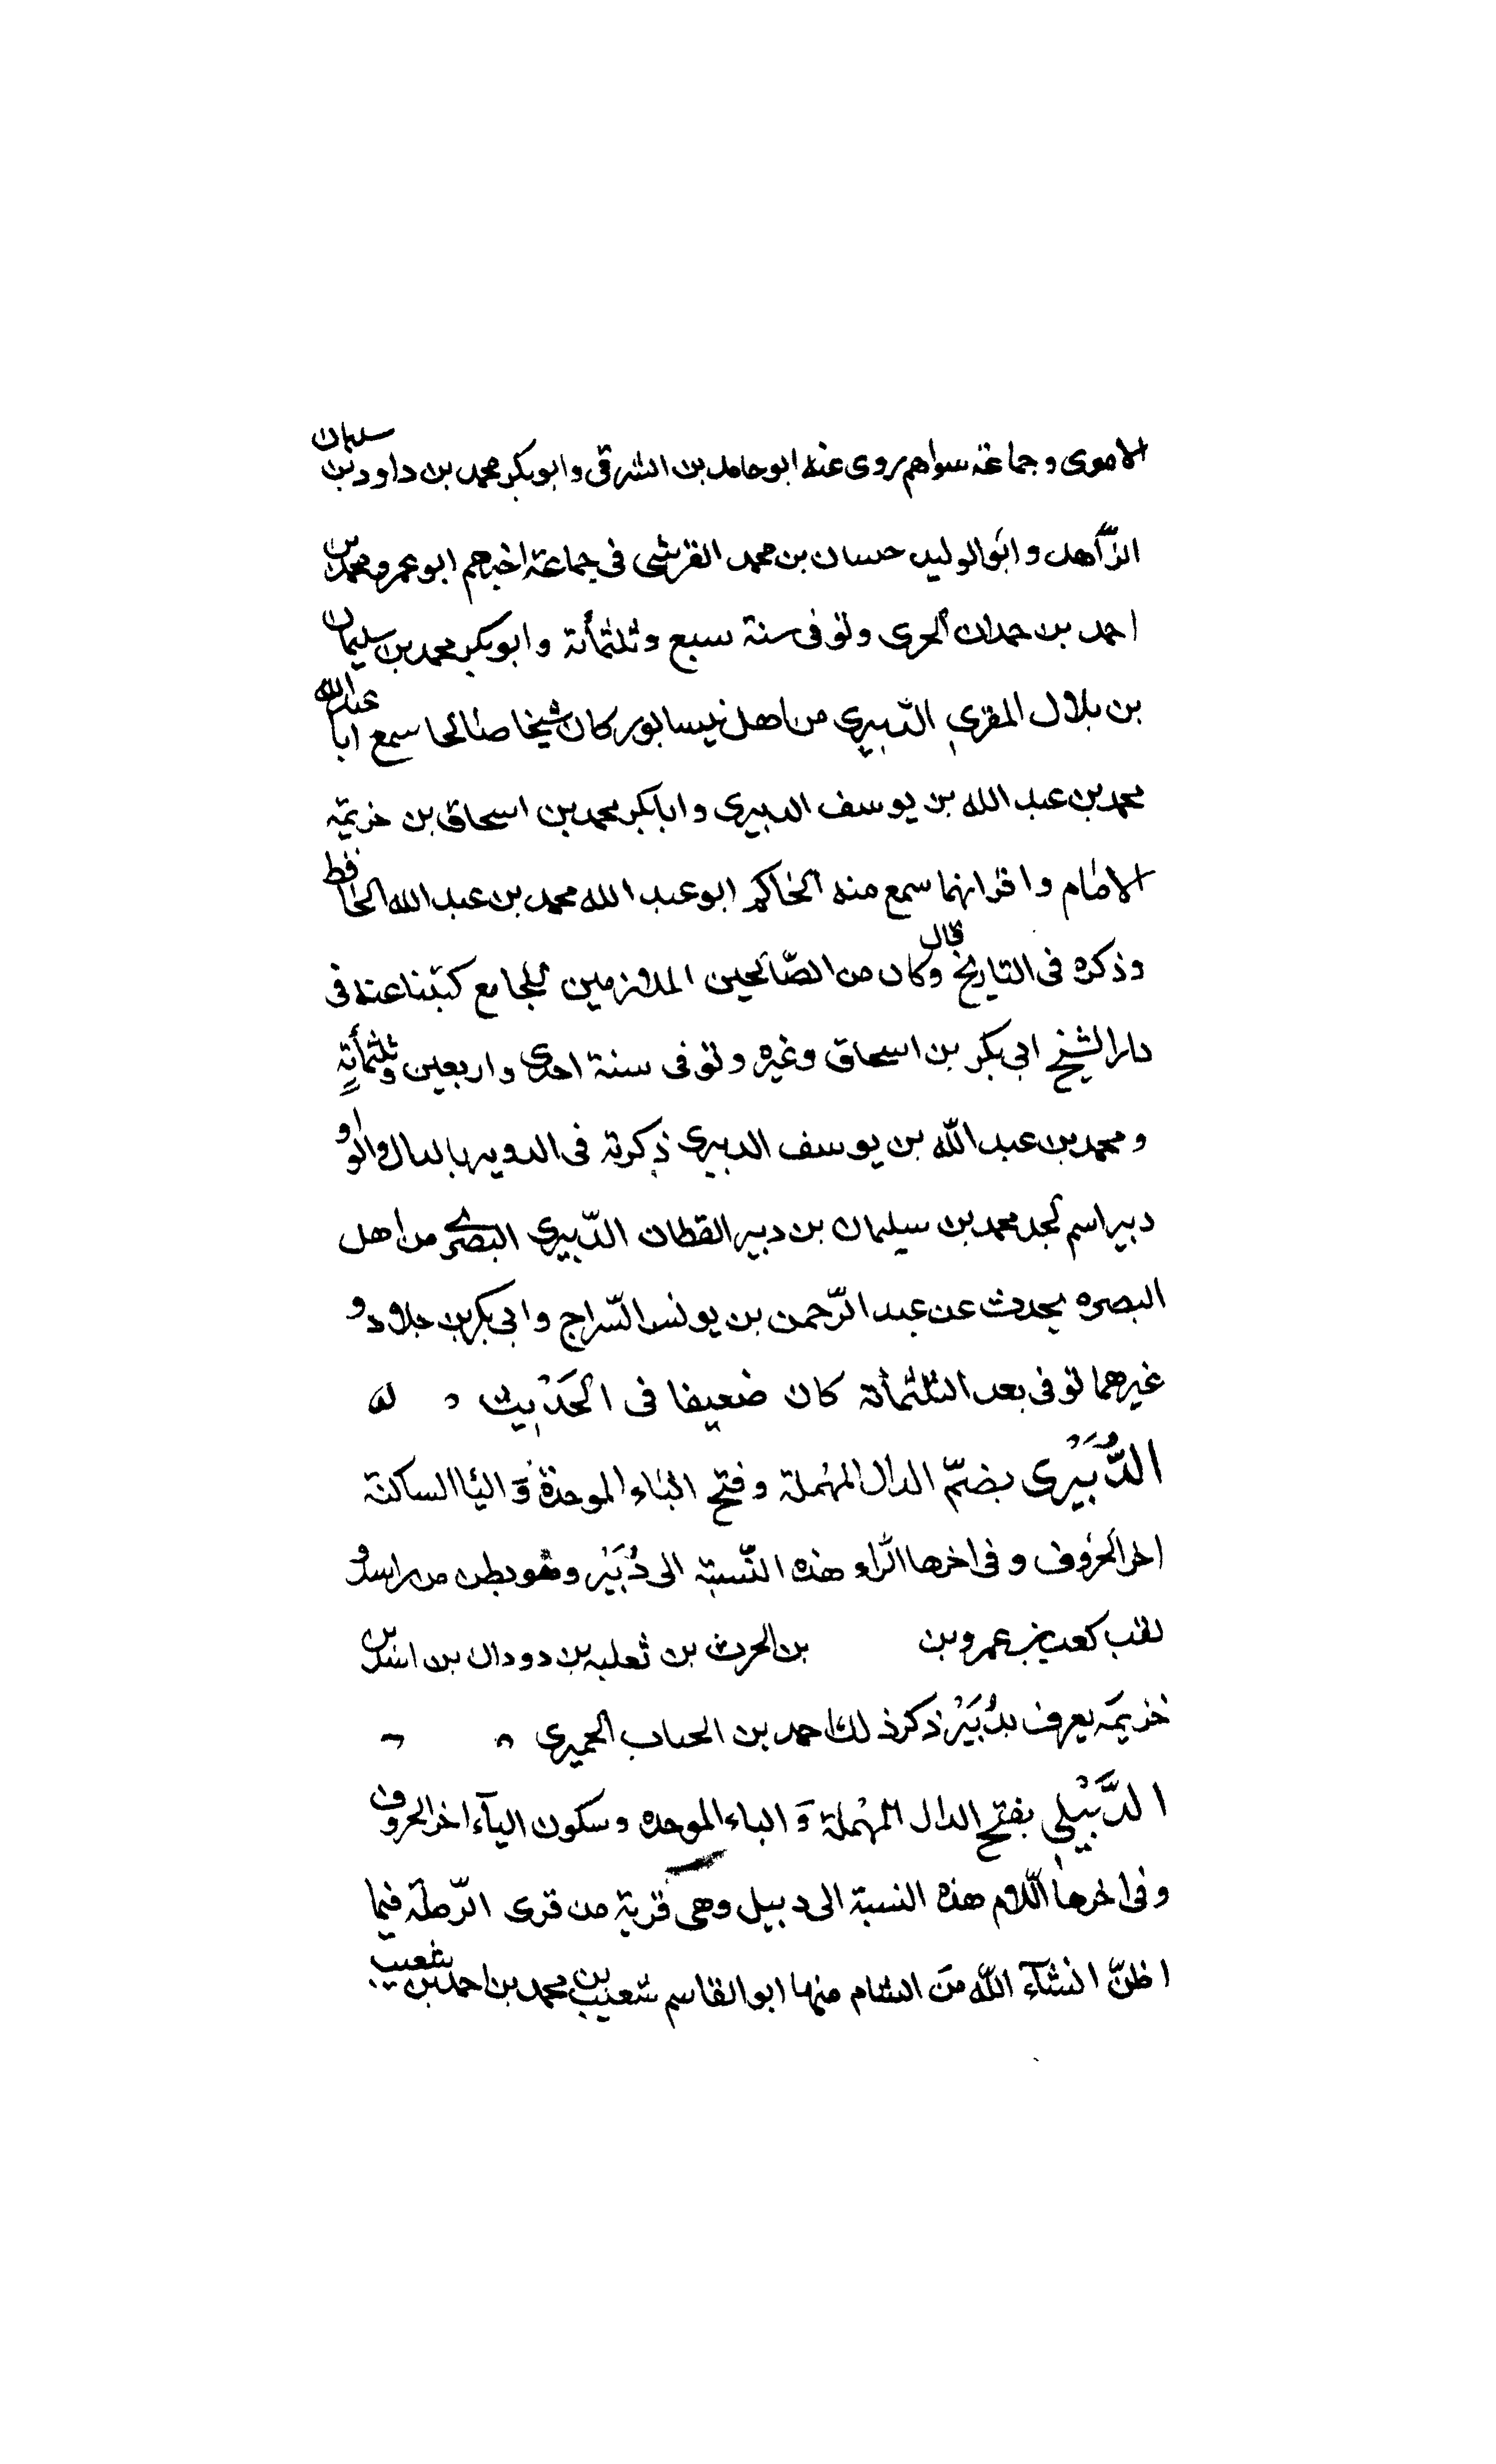 الاموى وجماعة سواهم روى عنه ابو حامد بن الشرقى وابوبكر محمد بن داود بن سليمان
الزّاهد وابو الوليد حسان بن محمد القرشى فى جماعة اخرهم ابو عمرو محمد بن
احمد بن حمدان الحرى وتوفى سنة سبع وثلثمأئة وابوبكر محمد بن سليمان
بن بلال المقرى الدّبيرى من اهل نيسابور كان شيخا صالحا سمع ابا عبدالله
محمد بن عبد الله بن يوسف الدبيرى وابابكر محمد بن اسحاق بن خزيمة
الامام واقرانهما سمع منه الحاكم ابو عبد الله محمد بن عبد الله الحافظ
وذكره فى التاريخ قال وكان من الصّالحين الملازمين للجامع كتبنا عنه فى
دار الشيخ ابى بكر بن اسحاق وغيره وتوفى سنة احدى واربعين وثلثمأية
ومحمد بن عبد اللّه بن يوسف الدبيرى ذكرته فى الدويربالدال والواو
دبير اسم لجد محمد بن سيلمان بن دبير القطان الدّبيرى البصرى من اهل
البصره يحدث عن عبد الرّحمن بن يونس السّراج وابى بكر بن خلاد و
غيرهما توفى بعد الثلثمأئة كان ضعيفا فى الحَدْيث ه
الدُّبَيْرى بضمّ الدال المهملة وفتح الباء الموحدة وَ اليا الساكنة
اخر الحروف و فى اخرها الرّاء هذه النّسبة الى دُبَيْر وهو بطن من اسد و
لقب كعب بن عمرو بن بن الحرث بن ثعلبه بن دودان بن اسد بن
خزيمَه يعرف بدُبَيْر ذكر ذلك احمد بن الحباب الحميرى
الدَّبْيلى بفتح الدال المهملة وَ الباء الموحده وسكون اليآء اخر الحروف
وفى اخرها اللّام هذه النسبة الى دبيل وهى قرية من قرى الرّملة فيما
اظنّ انشآء اللّه مَن الشام منها ابو القاسم شعيب بن محمد بن احمد بن شعيب